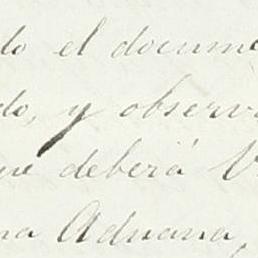 do el docume
do, y observ
ue deberá V
na Aduana,